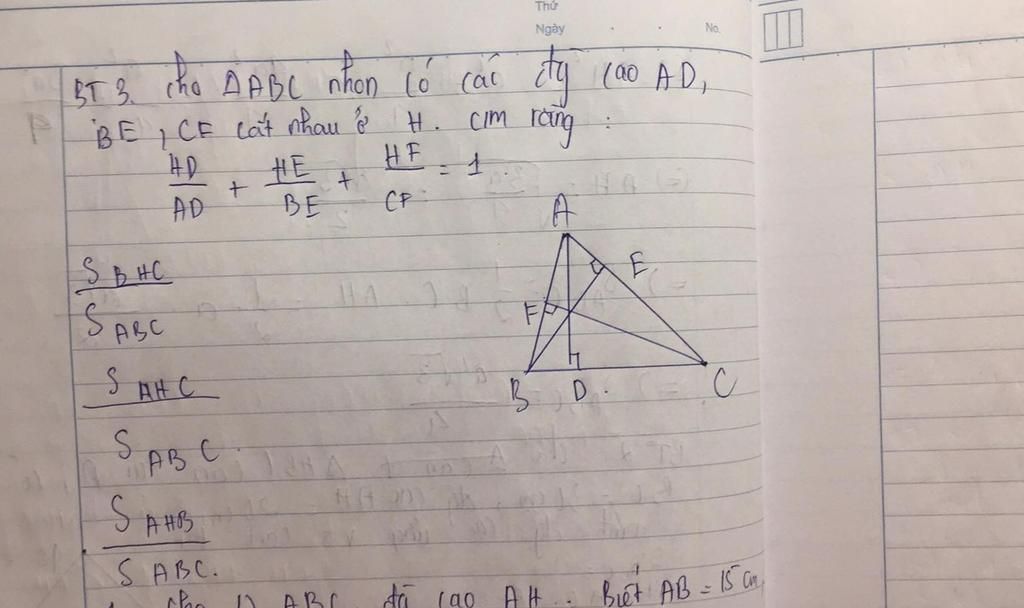 Thứ
Ngày . . No.
BT 3. Cho ΔABC nhọn có các đg cao AD,
BE, CF cắt nhau ở H. CM rằng :
HD/AD + HE/BE + HF/CF = 1.
S BHC
S ABC
S AHC
S ABC.
S AHB
S ABC.
A
E
F
B D. C
Cho ABC đg cao AH. Biết AB = 15 cm